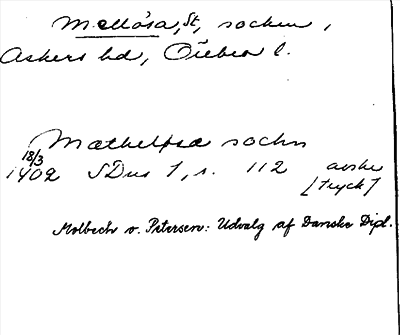 Mellösa, St, socken,
Askers hd, Örebro l.
Matheløsa sochn
18/3
1402 SDns 1, s. 112 avskr
[tryck]
Molbech o. Petersen: Udvalg af Danske Dipl.